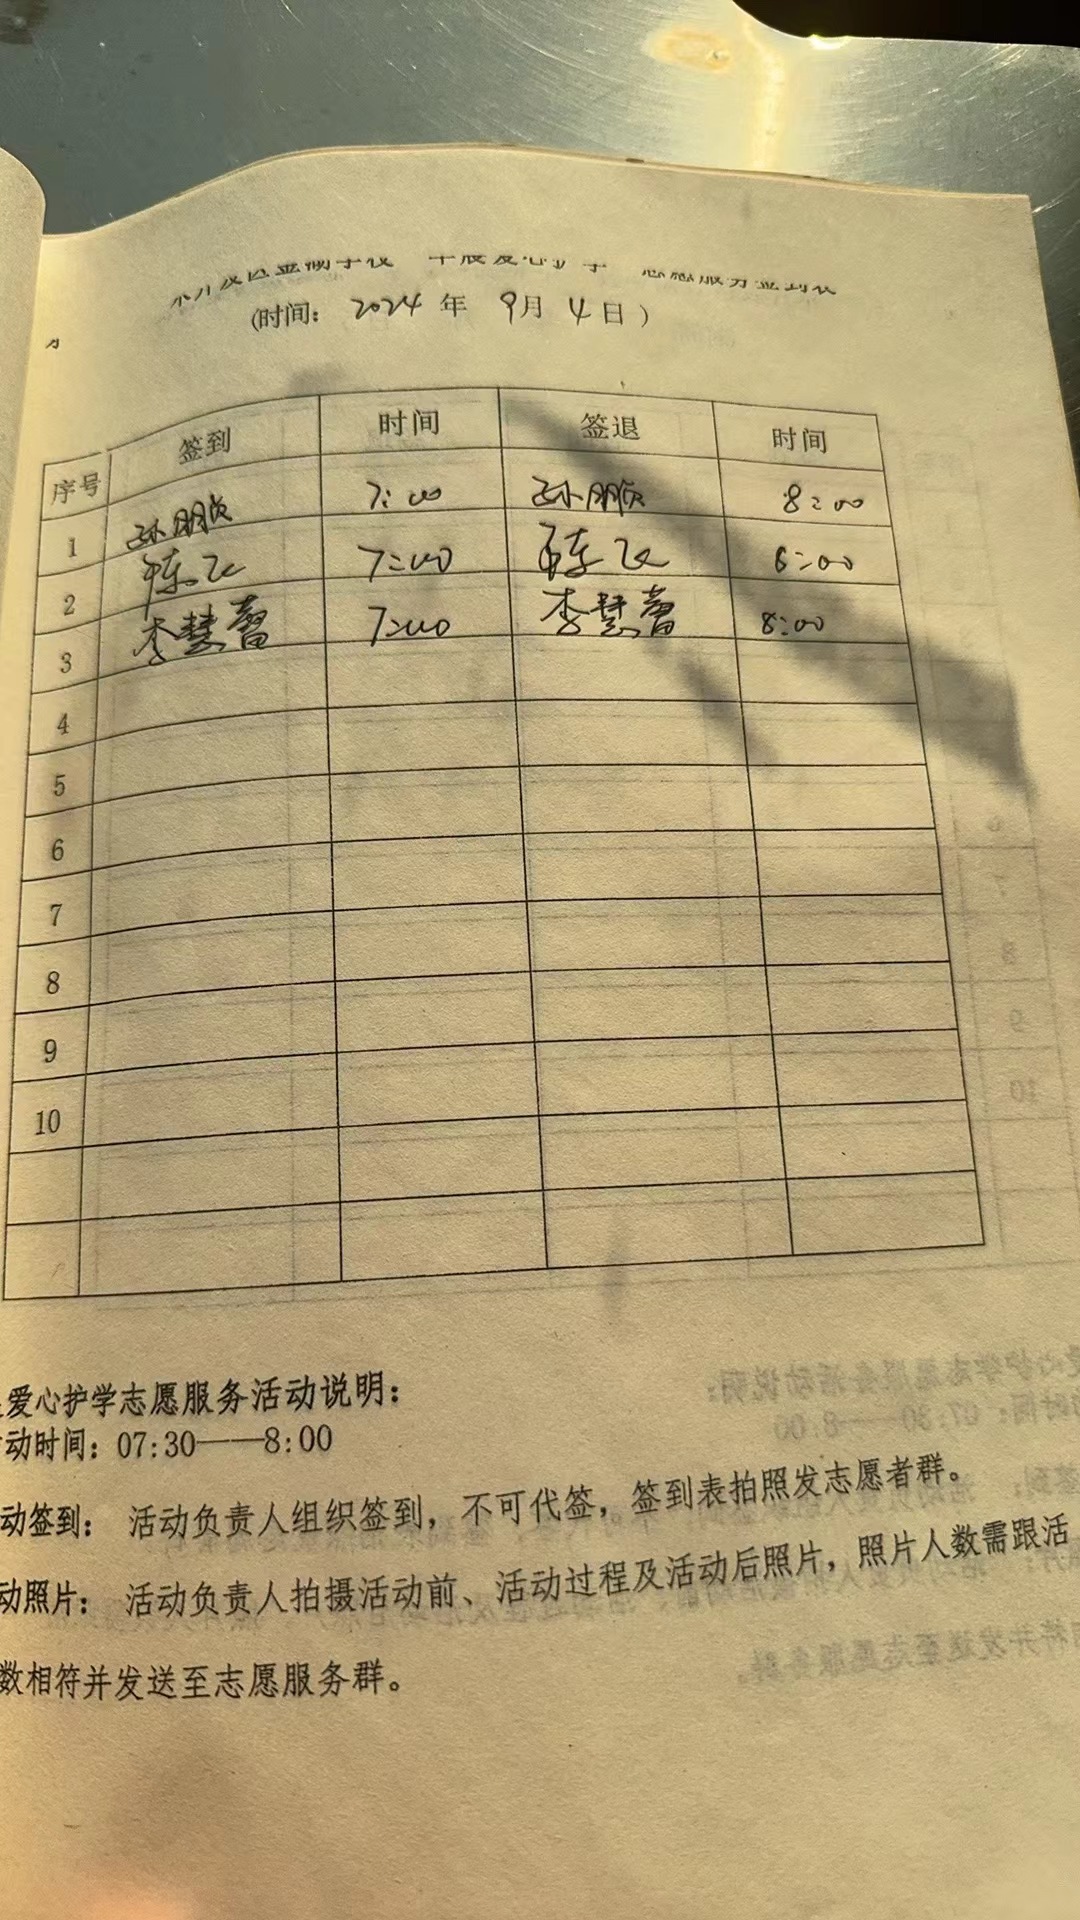 (时间: 2024 年 9月 4日)
序号 签到 时间 签退 时间
1 孙朋贞 7:00 孙朋贞 8:00
2 陈飞 7:00 陈飞 8:00
3 李慧蕾 7:00 李慧蕾 8:00
4
5
6
7
8
9
10
爱心护学志愿服务活动说明:
动时间: 07:30——8:00
动签到: 活动负责人组织签到,不可代签,签到表拍照发志愿者群。
动照片: 活动负责人拍摄活动前、活动过程及活动后照片,照片人数需跟活
数相符并发送至志愿服务群。